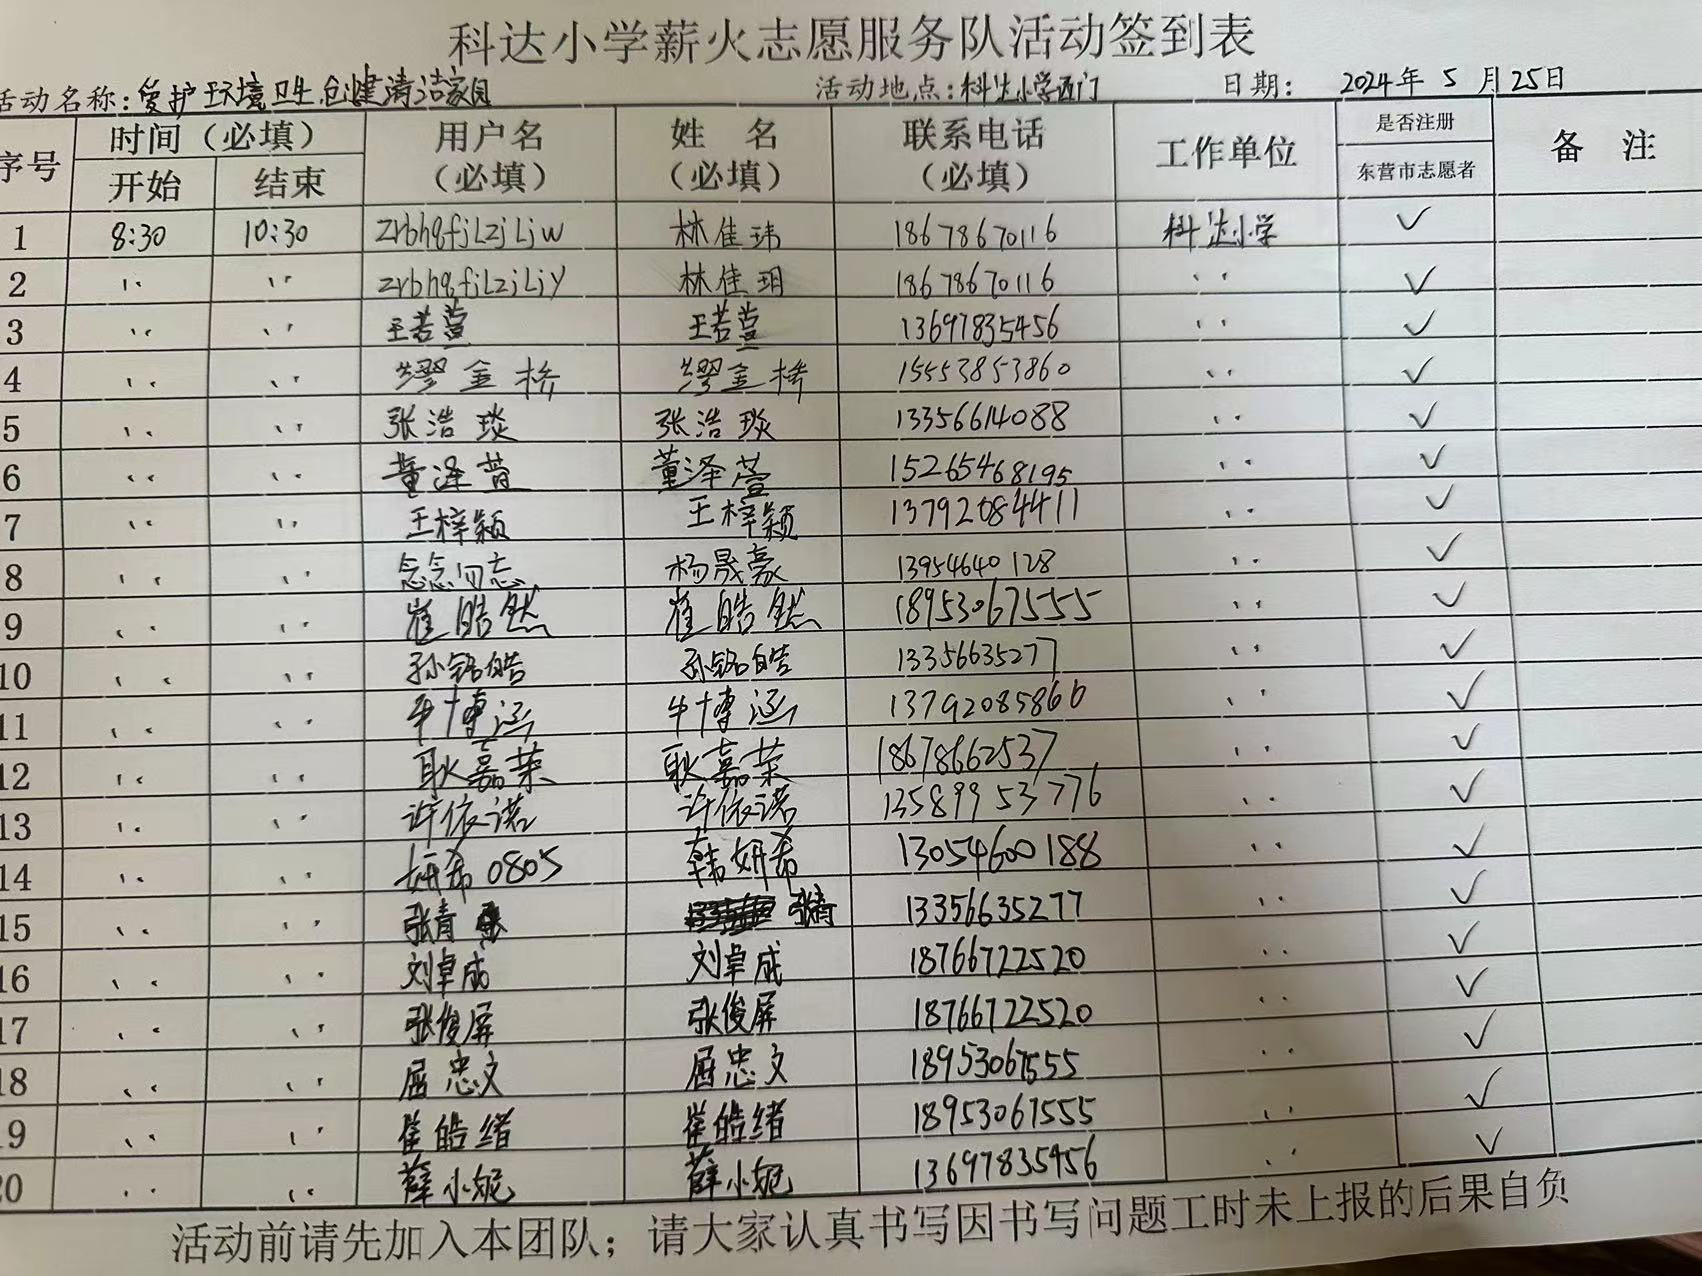 科达小学薪火志愿服务队活动签到表
活动名称：爱护环境卫生创建清洁家园 活动地点：科达小学西门 日期： 2024年 5 月 25日
序号 时间（必填） 用户名（必填） 姓 名（必填） 联系电话（必填） 工作单位 是否注册 备 注
开始 结束 东营市志愿者
1 8:30 10:30 zrbhqfjLzjLjw 林佳玮 18678670116 科达小学 ✓
2 〃 〃 zrbhqfjLzjLjy 林佳玥 18678670116 〃 ✓
3 〃 〃 王若萱 王若萱 13697835456 〃 ✓
4 〃 〃 缪金桥 缪金桥 15553853860 〃 ✓
5 〃 〃 张浩琰 张浩琰 13356614088 〃 ✓
6 〃 〃 董泽萱 董泽萱 15265468195 〃 ✓
7 〃 〃 王梓颖 王梓颖 13792084411 〃 ✓
8 〃 〃 念念勿忘 杨晟豪 13954640128 〃 ✓
9 〃 〃 崔皓然 崔皓然 18953067555 〃 ✓
10 〃 〃 孙铭皓 孙铭皓 13356635277 〃 ✓
11 〃 〃 牛博涵 牛博涵 13792085860 〃 ✓
12 〃 〃 耿嘉荣 耿嘉荣 18678662537 〃 ✓
13 〃 〃 许依诺 许依诺 13589953776 〃 ✓
14 〃 〃 妍希0805 韩妍希 13054600188 〃 ✓
15 〃 〃 张青 张青 13356635277 〃 ✓
16 〃 〃 刘卓成 刘卓成 18766722520 〃 ✓
17 〃 〃 张俊屏 张俊屏 18766722520 〃 ✓
18 〃 〃 屈忠文 屈忠文 18953067555 〃 ✓
19 〃 〃 崔皓绪 崔皓绪 18953067555 〃 ✓
20 〃 〃 薛小妮 薛小妮 13697835456 〃 ✓
活动前请先加入本团队；请大家认真书写因书写问题工时未上报的后果自负